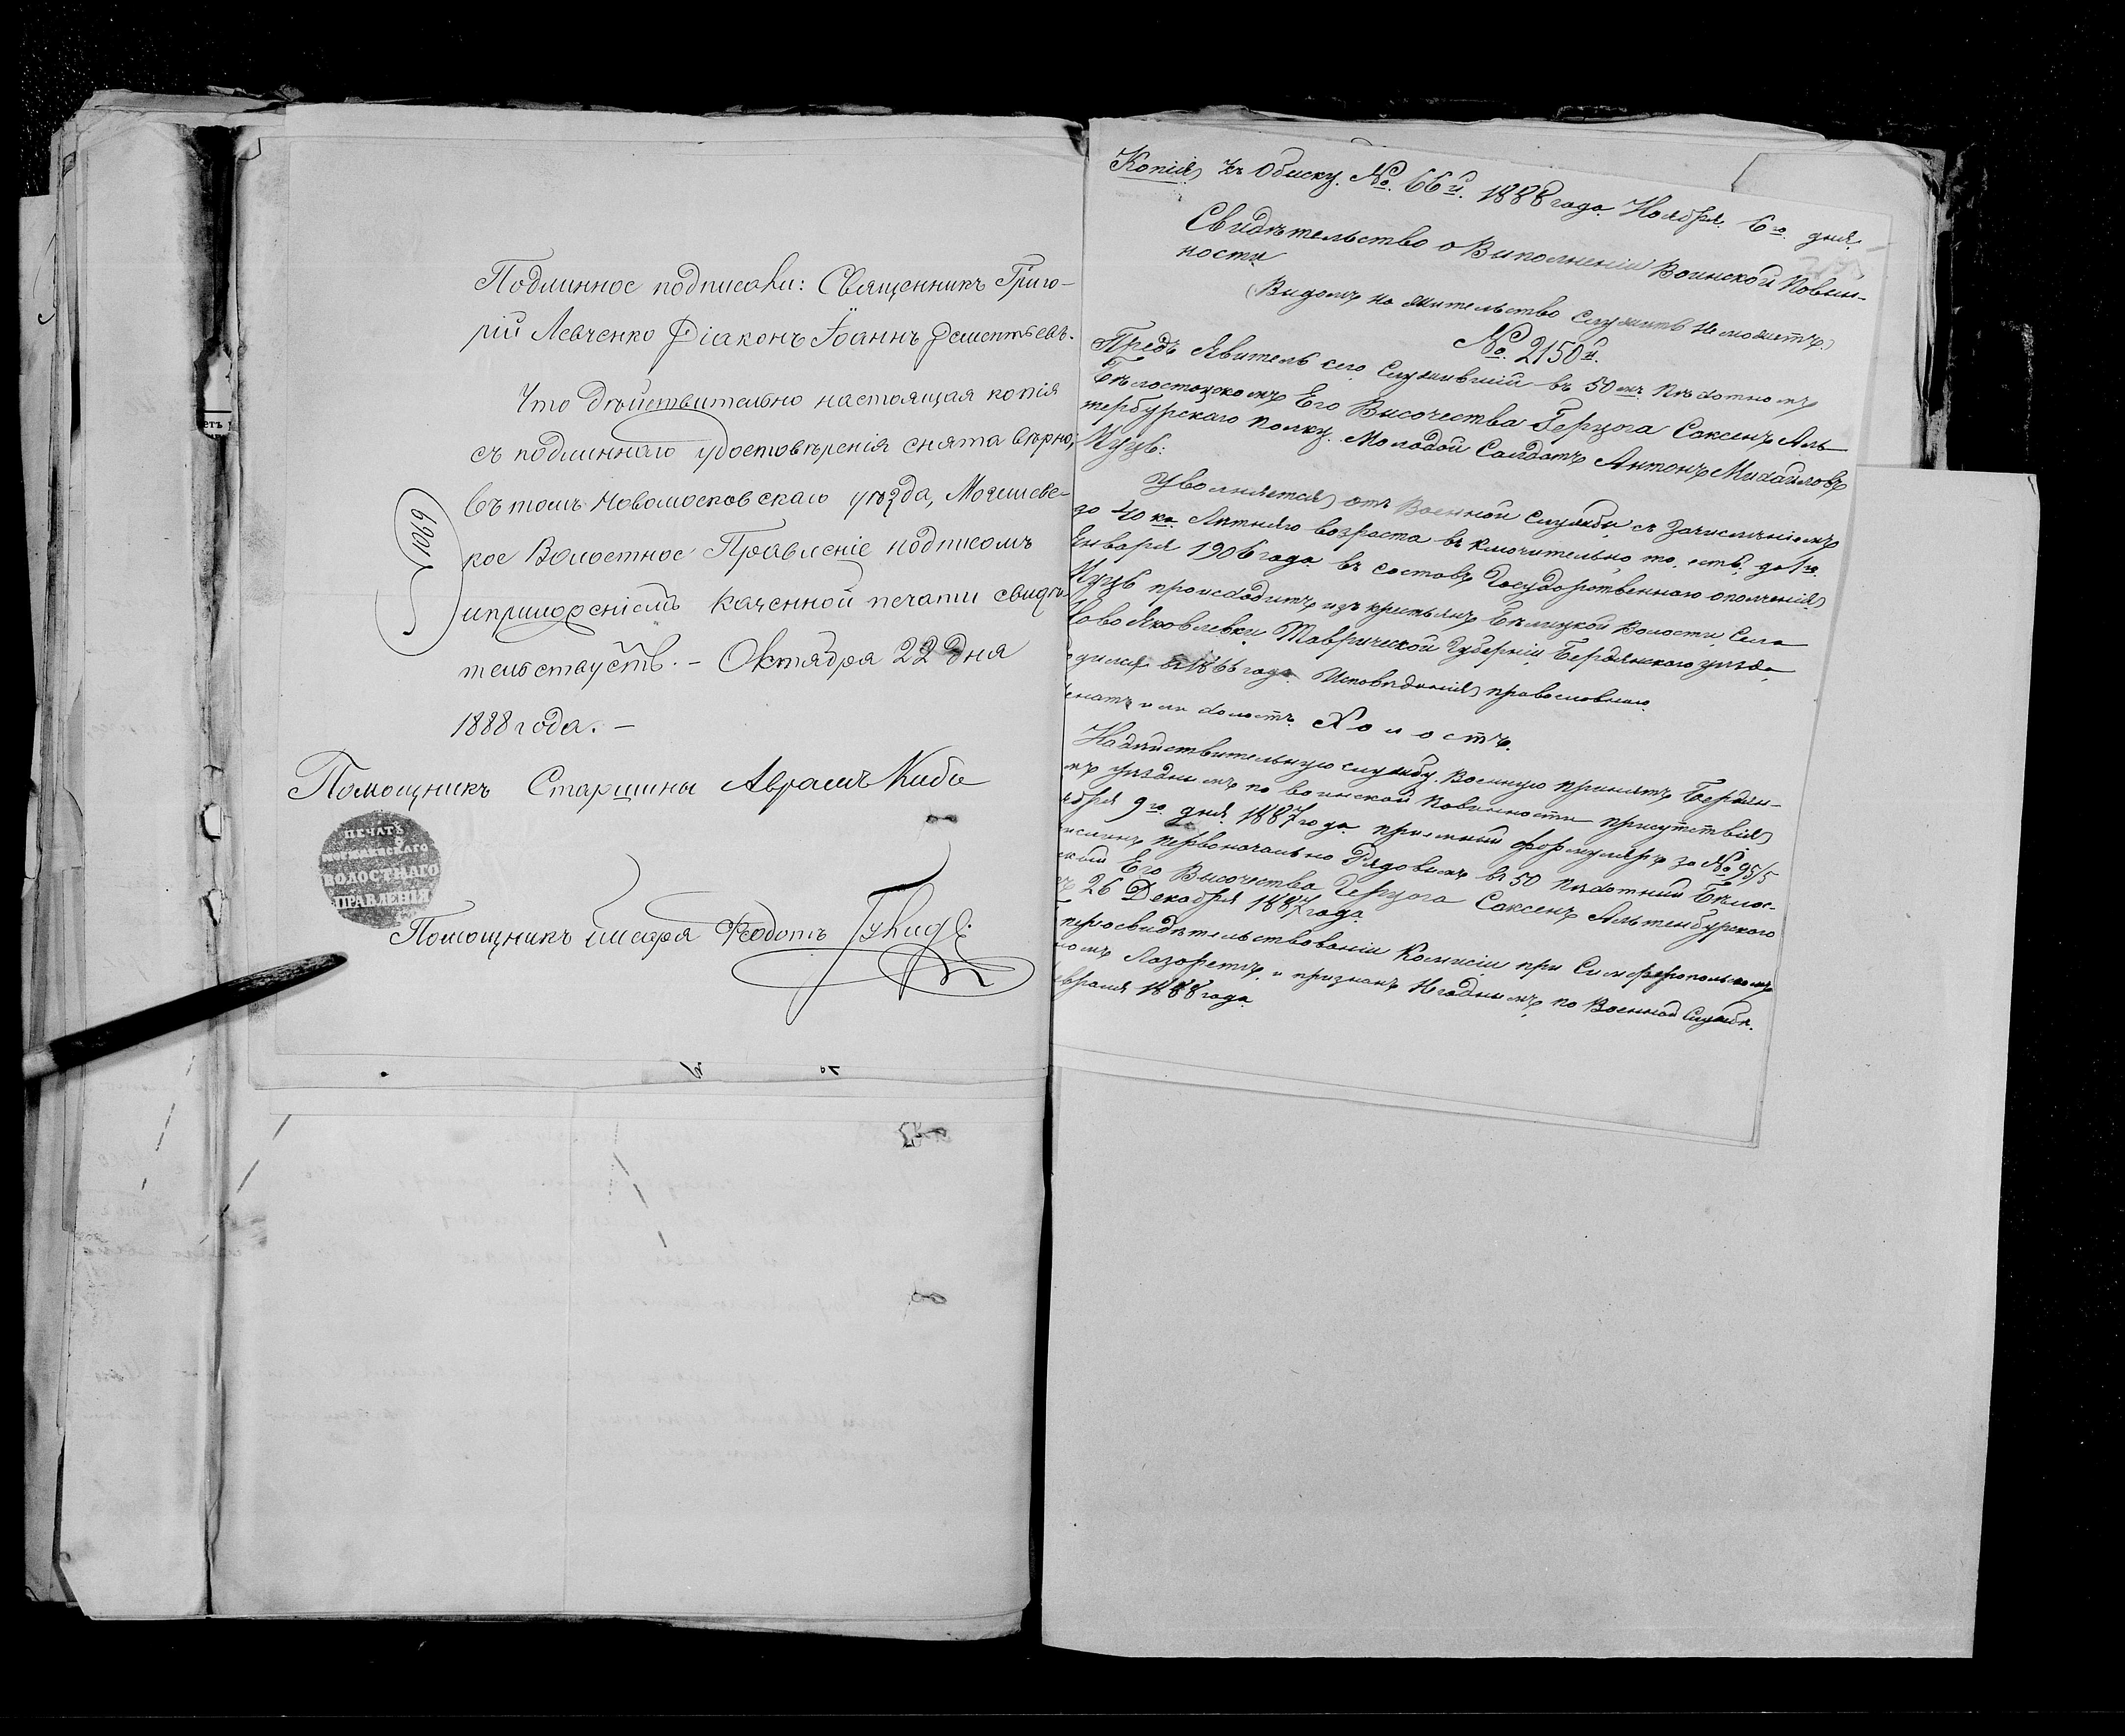 Подлинное подписали: Священникъ Григо-
рій Левченко Діаконъ Іоаннъ Дементьевъ.
Что дѣйствительно настоящая копія
съ подлиннаго удостовѣренія снята вѣрно,
въ томъ Новомосковскаго уѣзда,
кое Волостное Правленіе подписомъ
и приложеніемъ казенной печати свидѣ-
тельствуетъ. - Октября 22 дня
1888 года. -
№ 1069
Помощникъ Старшины Аврамъ Киба
ПЕЧАТЬ
ВОЛОСТНАГО
ПРАВЛЕНІЯ
Помощникъ писаря Федотъ
Копія къ Обыску. №. 66й. 1888 года. Ноября. 6го. дня.
Свидѣтельство о Виполненіи Воинской Повин-
ности
(Видомъ на жительство служить не можетъ)
№. 2150й.
Предъ Явитель сего Служившій въ 50мъ Пѣхотномъ
Бѣлостоцкомъ Его Височества Герцога Саксенъ Аль-
тербурскаго полку. Молодой Солдатъ Антонъ Михайловъ
Куцъ:
Увольняется отъ Военной Службы, съ Зачисленіемъ
до 40ка Лѣтняго возраста включительно то. есть. до 1го.
Января 1906 года въ составъ Государственнаго ополченія
Куцъ происходитъ изъ крестьянъ Волости, Села
Ново Яковлевки Таврической Губерніи Бердянскаго уѣзда,
одился въ 1866 году. Исповѣданія православнаго.
енатъ или холостъ. Холостъ.
На дѣйствительную службу. Военную принятъ Бердян-
мъ уѣзднымъ по воинской повинности присутствія
ября 9го. дня. 1887 года пріемный формуляръ за № 95/5
исленъ первоначально Рядовымъ въ 50 Пѣхотний Бѣлос-
скій Его Височества Герцога Саксенъ Альтенбурскаго
ъ 26 Декабря 1887 года
переосвидѣтельствованіи Комисіи при Симферопольскомъ
номъ Лазоретѣ, и признанъ Негоднимъ, по Военной Службѣ.
евраля 1888 года